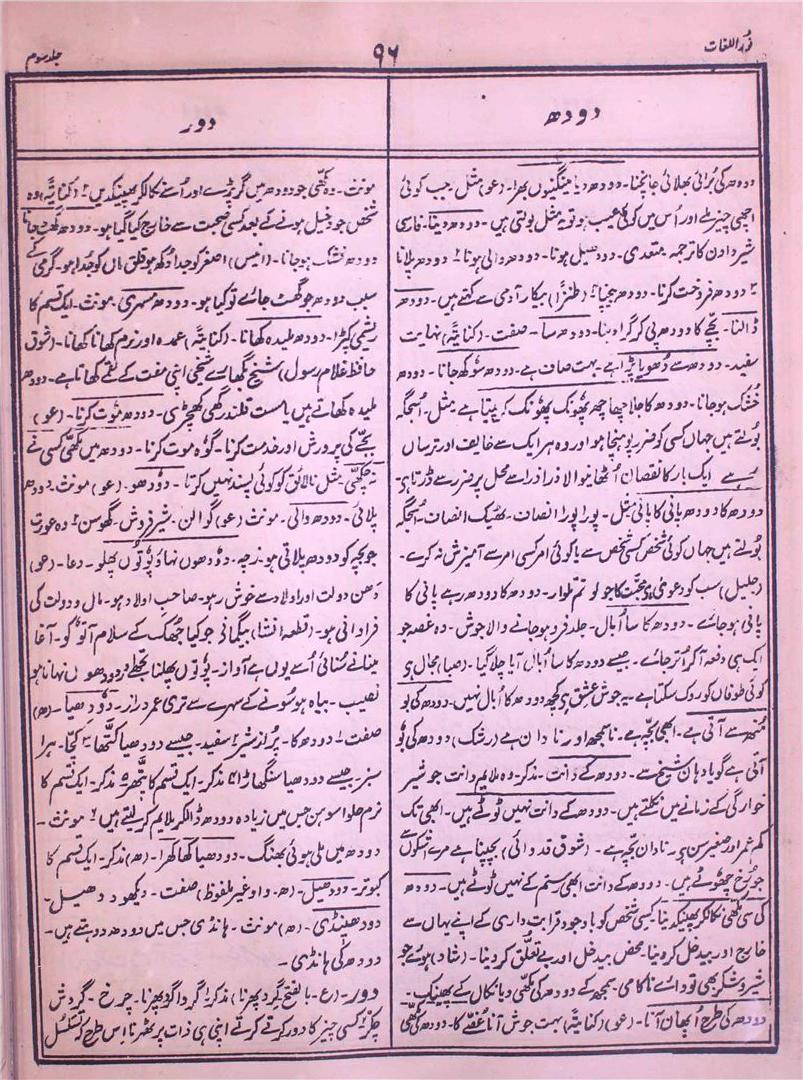 نُور اللغات
۹۶
جلد سوم
دودھ
دور
دودھ کی بُرائی بھلائی جانچنا۔ دودھ دیا مینگنیوں بھرا۔ (عو) مثل۔ جب کوئی
اچھی چیز ملے اور اُس میں کوئی عیب ہو تو یہ مثل بولتی ہیں۔ دودھ دینا۔ فارسی
شیر دادن کا ترجمہ متعدی۔ دودھیل ہونا۔ دودھ والی ہونا ۲ دودھ پلانا
۳ دودھ فروخت کرنا۔ دودھ بیچنا ۲ (طنزاً) بیکار آدمی سے کہتے ہیں۔ دودھ
ڈالنا۔ بچّے کا دودھ پی کر گرا دینا۔ دودھ سا۔ صفت۔ (کنایتہً) نہایت
سفید۔ دودھ سے دُھویا پڑا ہے۔ بہت صاف ہے۔ دودھ سُوکھ جانا۔ دودھ
خُشک ہو جانا۔ دودھ کا جلا چھاچھ پھُونک پھُونک کر پیتا ہے مثل۔ اُسجگہ
بولتے ہیں جہاں کسی کو ضرر پہنچا ہو اور وہ ہر ایک سے خایف اور ترساں
رہے ایک بار کا نقصان اُٹھانیوالا ذرا ذرا سے محل پر ضرر سے ڈرتا ہے۔
دودھ کا دودھ پانی کا پانی مثل۔ پورا پورا انصاف۔ ٹھیک انصاف۔ اُسجگہ
بولتے ہیں جہاں کوئی شخص کسی شخص سے یا کوئی امر کسی امر سے آمیزش نہ کرے۔
(جلیل) سب کو دعویٰ ہے محبّت کا جو لو تم تلوار۔ دودھ کا دودھ رہے پانی کا
پانی ہو جائے۔ دودھ کا سا اُبال۔ جلد فرو ہو جانے والا جوش۔ وہ غصہ جو
ایک ہی دفعہ آ کر اُتر جائے۔ جیسے دودھ کا سا اُبال آیا چلا گیا۔ (صبا) مجال ہے
کوئی طوفاں کو روک سکتا ہے۔ یہ جوش عشق ہے کچھ دودھ کا اُبال نہیں۔ دودھ کی بو
مُنھ سے آتی ہے۔ ابھی بچّہ ہے۔ ناسمجھ اور نادان ہے (رشک) دودھ کی بُو
آتی ہے گویا دہان شیخ سے۔ دودھ کے دانت۔ مذکر۔ وہ ملایم دانت جو شیر
خوارگی کے زمانے میں نکلتے ہیں۔ دودھ کے دانت نہیں ٹوٹے ہیں۔ ابھی تک
کم عمر اور صغیر سن ہے۔ نادان بچّہ ہے۔ (شوق قدوائی) بچپنا ہے مرے اشکوں سے
جو رُخ چھوٹے ہیں۔ دودھ کے دانت ابھی رستم کے نہیں ٹوٹے ہیں۔ دودھ
کی سی مکھی نکالکر پھینکدینا۔ کسی شخص کو باوجود قرابت داری کے اپنے یہاں سے
خارج اور بیدخل کر دینا۔ محض بیدخل اور بے تعلّق کر دینا۔ (شاد) ہوئے جو
شیر و شکر بھی تو وائے ناکامی۔ سمجھ کے دودھ کی مکھی دیا نکال کے پھینک۔
دودھ کی طرح اُپھان آنا۔ (عو) (کنایتہً) بہت جوش آنا غُصّے کا۔ دودھ کی مکھّی
مونث۔ وہ مکھّی جو دودھ میں گر پڑے اور اُسے نکالکر پھینکدیں ۲ (کنایتہً) وہ
شخص جو دخیل ہونے کے بعد کسی صحبت سے خارج کیا گیا ہو۔ دودھ گھٹ جانا
دودھ خشک ہو جانا۔ (انیس) اصغر کو جدا دُکھ ہو قلق ماں کو جُدا ہو۔ گرمی کے
سبب دودھ جو گھٹ جائے تو کیا ہو۔ دودھ مسہری۔ مونث۔ ایک قسم کا
ریشمی کپڑا۔ دودھ ملیدہ کھانا۔ (کنایتہً) عمدہ اور نرم کھانا کھانا۔ (شوق
حافظ غلام رسول) شیخ بگھارے شیخی اپنی مفت کے لقمے کھاتا ہے۔ دودھ
ملیدہ کھاتے ہیں یا مست قلندر گھی کھچڑی۔ دودھ مُوت کرنا۔ (عو)
بچّے کی پرورش اور خدمت کرنا۔ گُوہ موت کرنا۔ دودھ میں مکّھی کسی نے
نہ چکّھی۔ مثل نالائق کو کوئی پسند نہیں کرتا۔ دُودھو۔ (عو) مونث۔ دودھ
پلائی۔ دودھ والی۔ مونث (عو) گوالن۔ شیر فروش۔ گھوسن ۲ وہ عورت
جو بچہ کو دودھ پلاتی ہو۔ زچہ۔ دُودھوں نہاؤ پُوتوں پھلو۔ دعا۔ (عو)
دھن دولت اور اولاد سے خوش رہو۔ صاحب اولاد ہو۔ مال و دولت کی
فراوانی ہو۔ (قطعہ انشا) بیگماتی جو کیا جُھک کے سلام آتو کو۔ آغا
مینا نے سُنائی اُسے یوں ہے آواز۔ پُوتوں پھلنا تجھے ہو دودھوں نہانا ہو
نصیب۔ بیاہ ہو سُونے کے سہرے سے تری عمر دراز۔ دُودھیا۔ (ھ)
صفت ۱ دودھ کا۔ پُر از شیر ۲ سفید۔ جیسے دودھیا کتّھا ۳ کچّا۔ ہرا
سبز۔ جیسے دودھیا سنگھاڑا ۴ مذکر۔ ایک قسم کا پتّھر ۵ مذکر۔ ایک قسم کا
نرم حلوا سوہن جس میں زیادہ دودھ ڈالکر ملایم کر لیتے ہیں ۶ مونث۔
دودھ میں ملی ہوئی بھنگ۔ دودھیا کھاکھرا۔ (ھ) مذکر۔ ایک قسم کا
کبوتر۔ دودھیل۔ (ھ۔ واو غیر ملفوظ) صفت۔ دیکھو دھیل۔
دودھینڈی۔ (ھ) مونث۔ ہانڈی جس میں دودھ دوہتے ہیں۔
دودھ کی ہانڈی۔
دور۔ (ع۔ بالفتح گرد پھرنا) مذکر ۱ گردا گرد پھرنا۔ چرخ۔ گردش
چکّر ۲ کسی چیز کا دور کرتے کرتے اپنی ہی ذات پر ٹھہرنا اس طرح کہ تسلسل